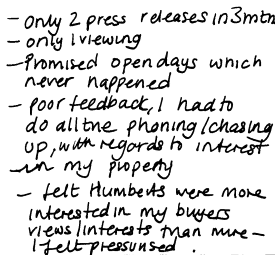 - only 2 press releases in 3mth
- only 1 viewing
- Promised open days which
never happened
- poor feedback, I had to
do all the phoning/chasing
up, with regards to interest
- in my property
- felt Humberts were more
interested in my buyers
views/interests than mine -
I felt pressurised.